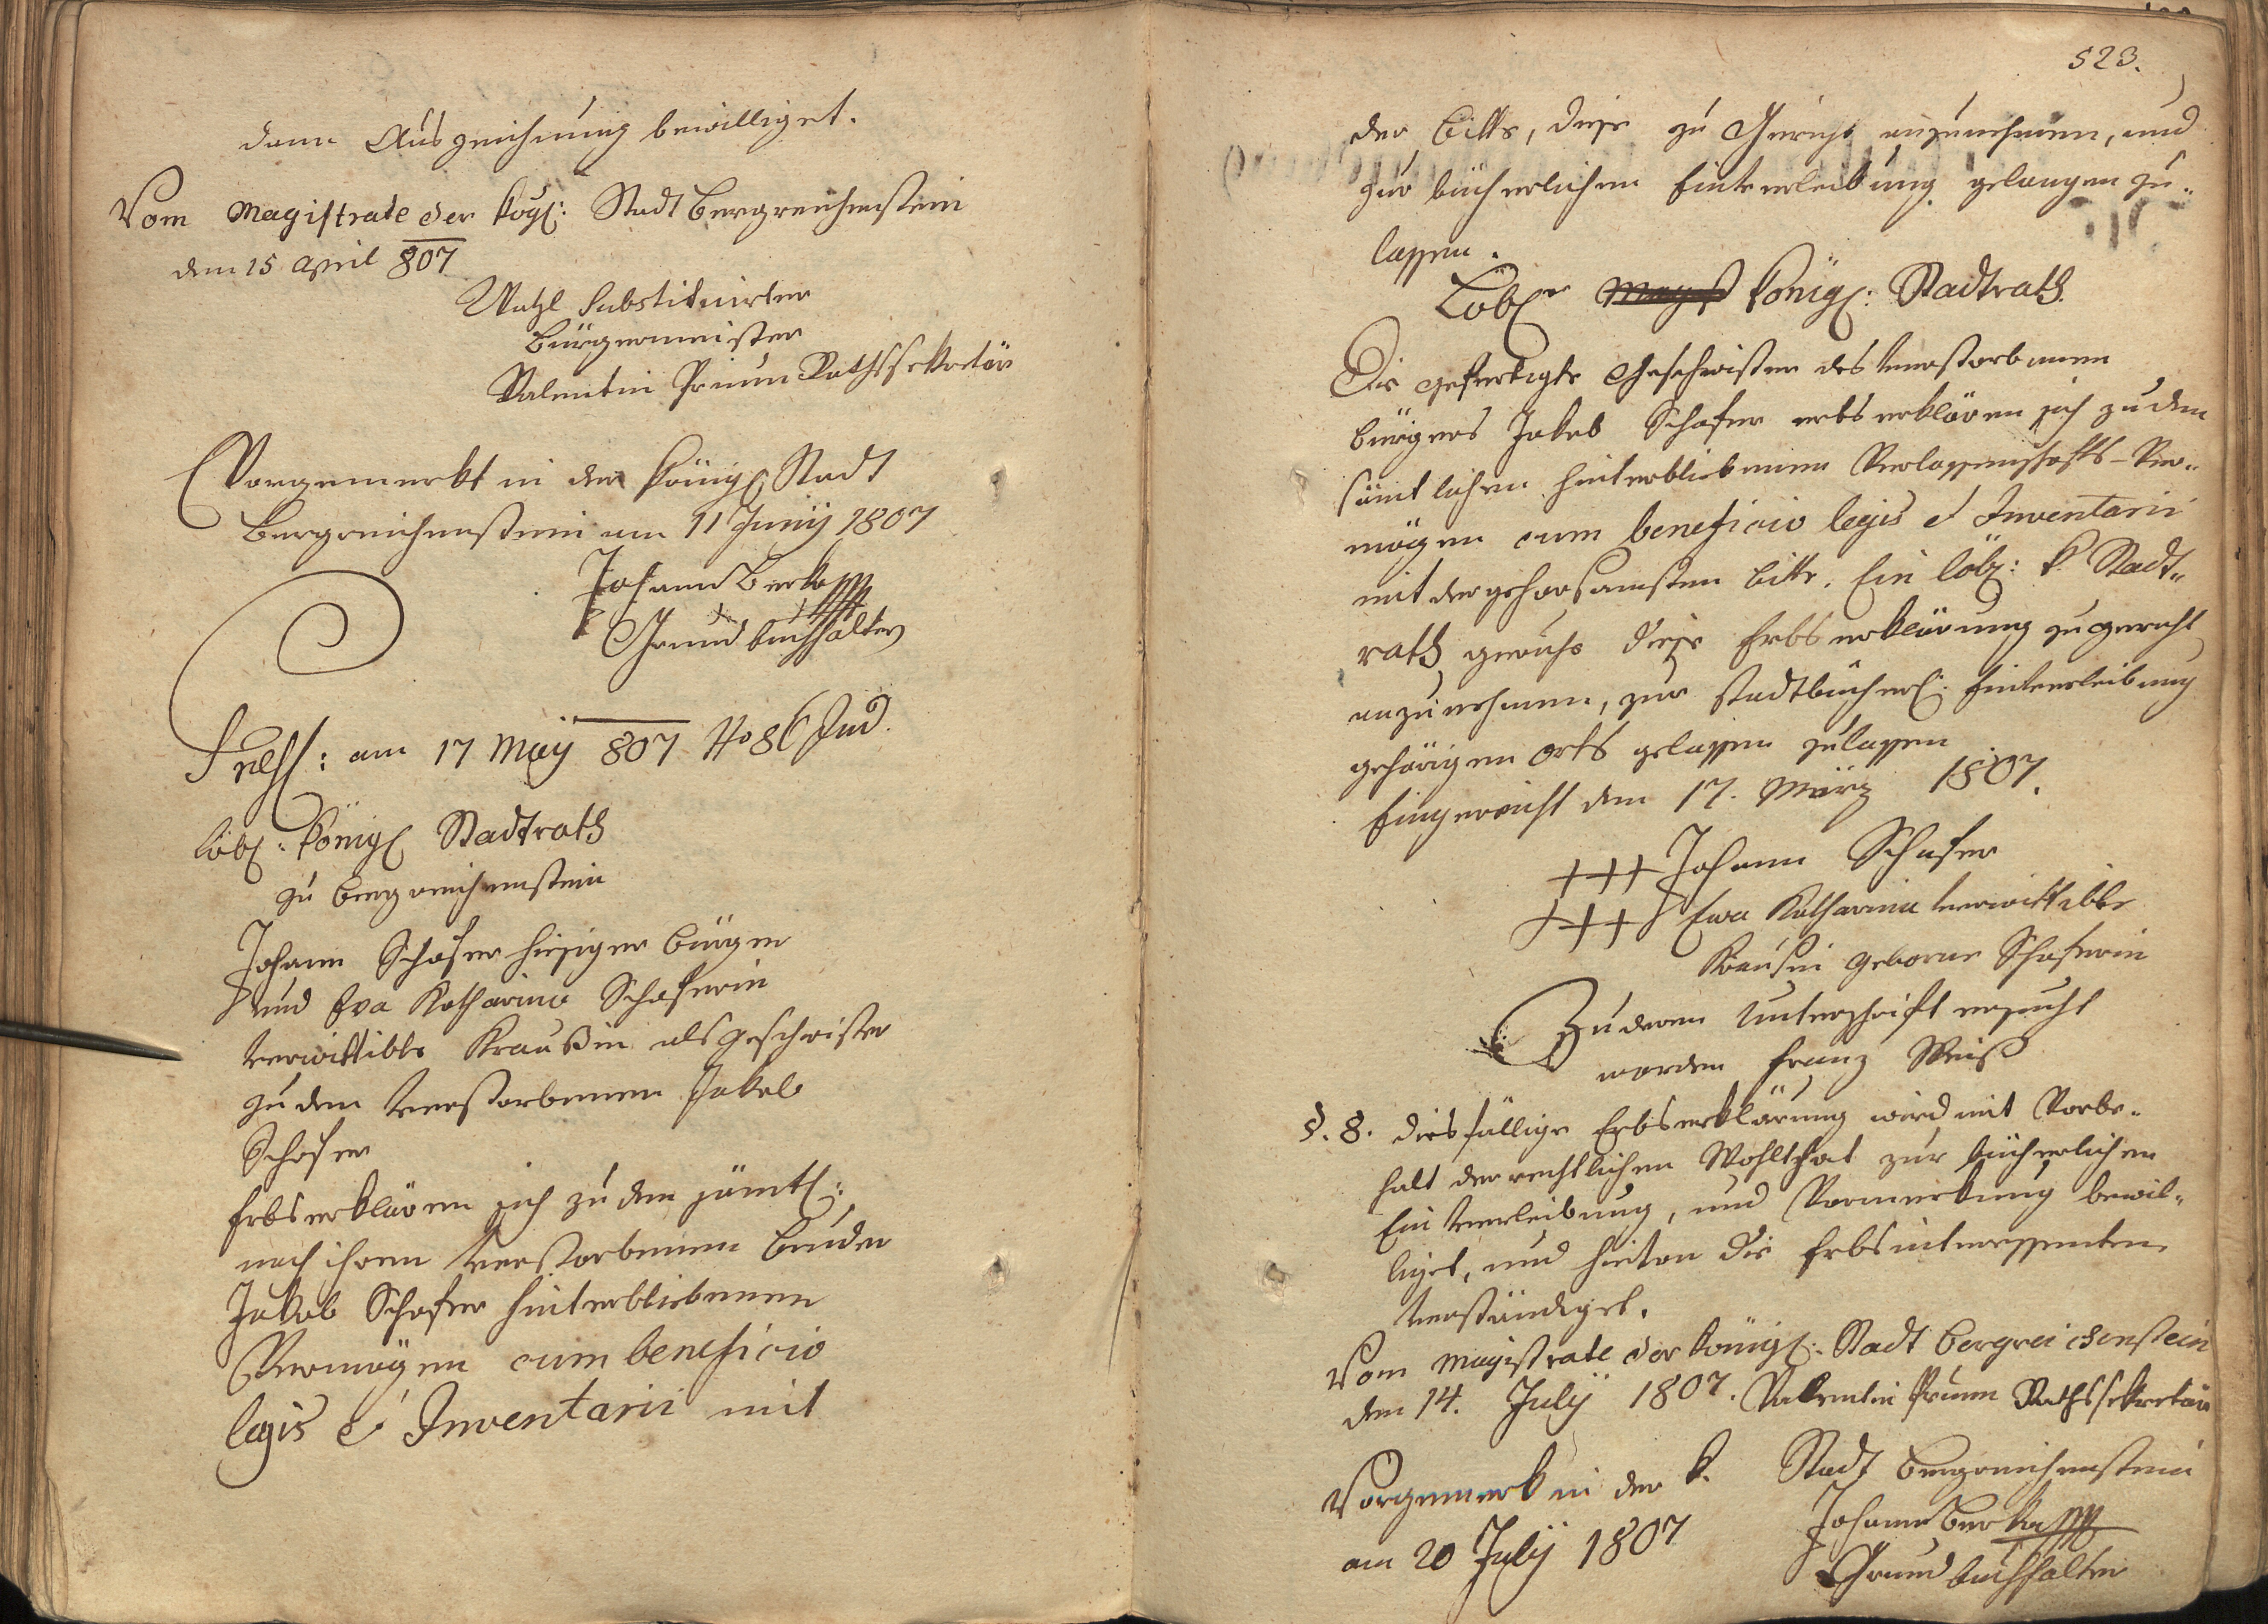 dann Auszeichnung bewilliget.
Vom Magistrate der kögl: Stadt Bergreichenstein
den 15 April 807
Watzl Substituirter
Bürgermeister
Valentin Prinm Rathssekretär
Vorgemerkt in der königl Stadt
Bergreichenstein am 11 Junij 1807
Johann Berka
Grundbuchhalter
am 17 May 807 No 86 Jud.
Löbl: königl Stadtrath
zu Bergreichenstein
Johann Schafer hiesiger Bürger
und Eva Katharina Schaferin
verwittibte Kraußin als Geschwister
zu dem verstorbenen Jakob
Schafer
erbserklären sich zu dem sämtl:
nach ihren verstorbenen Bruder
Jakob Schafer hinterbliebenen
Vermögen cum beneficio
legis et Inventarii mit
523.
der Bitte, diese zu Gericht anzunehmen, und
zur bücherlichen Einverleibung gelangen zu
lassen.
Löbler Magist königl: Stadtrath.
Die gefertigte Geschwister des verstorbenen
Bürgers Jakob Schafer erbserklären sich zu dem
sämtlichen hinterbliebenen Verlassenschafts-Ver-
mögen cum beneficio legis et Inventarii
mit der gehorsamsten Bitte. Ein löbl: k. Stadt-
rath geruhe diese Erbserklärung zu gericht
anzunehmen, zur stadtbücherl: Einverleibung
gehörigen Orts gelassen zulassen
Eingereicht den 17. März 1807.
+++ Johann Schafer
+++ Ewa Katharina verwittibte
Krausin geborne Schaferin
Zu deren Unterschrift ersucht
worden Franz Weiß
§. 8. diesfällige Erbserklärung wird mit Vorbe-
halt der rechtlichen Wohlthat zur bücherlichen
Einverleibung, und Vormerkung bewil-
liget, und hievon die Erbsinteressenten
verständiget.
Vom Magistrate der königl: Stadt Bergreichenstein
den 14. Julij 1807. Valentin Prinm Rathssekretär
Vorgemerk in der k. Stadt Bergreichenstein
am 20 Julij 1807
Johann Berka
Grundbuchhalter